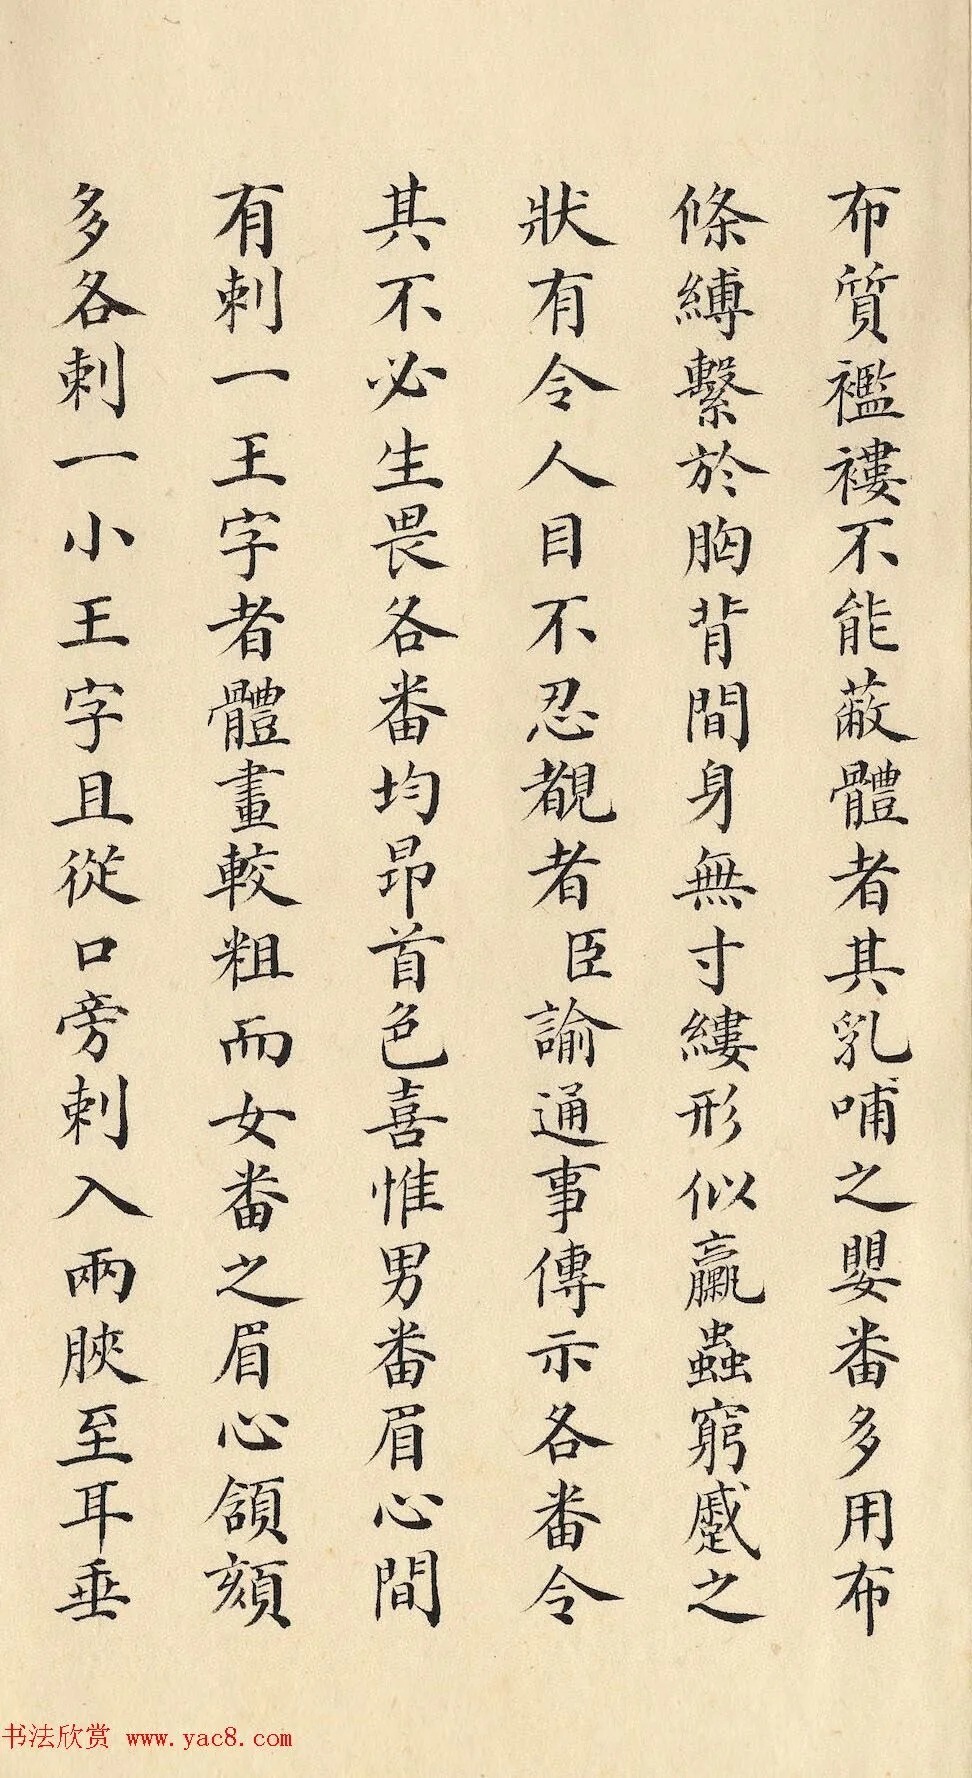 布質襤褸不能蔽體者其乳哺之嬰番多用布
條縛繫於胸背間身無寸縷形似臝蟲窮蹙之
狀有令人目不忍覩者臣諭通事傳示各番令
其不必生畏各番均昂首色喜惟男番眉心間
有刺一王字者體畫較粗而女番之眉心頷頦
多各刺一小王字且從口旁刺入兩腴至耳垂
书法欣赏 www.yac8.com